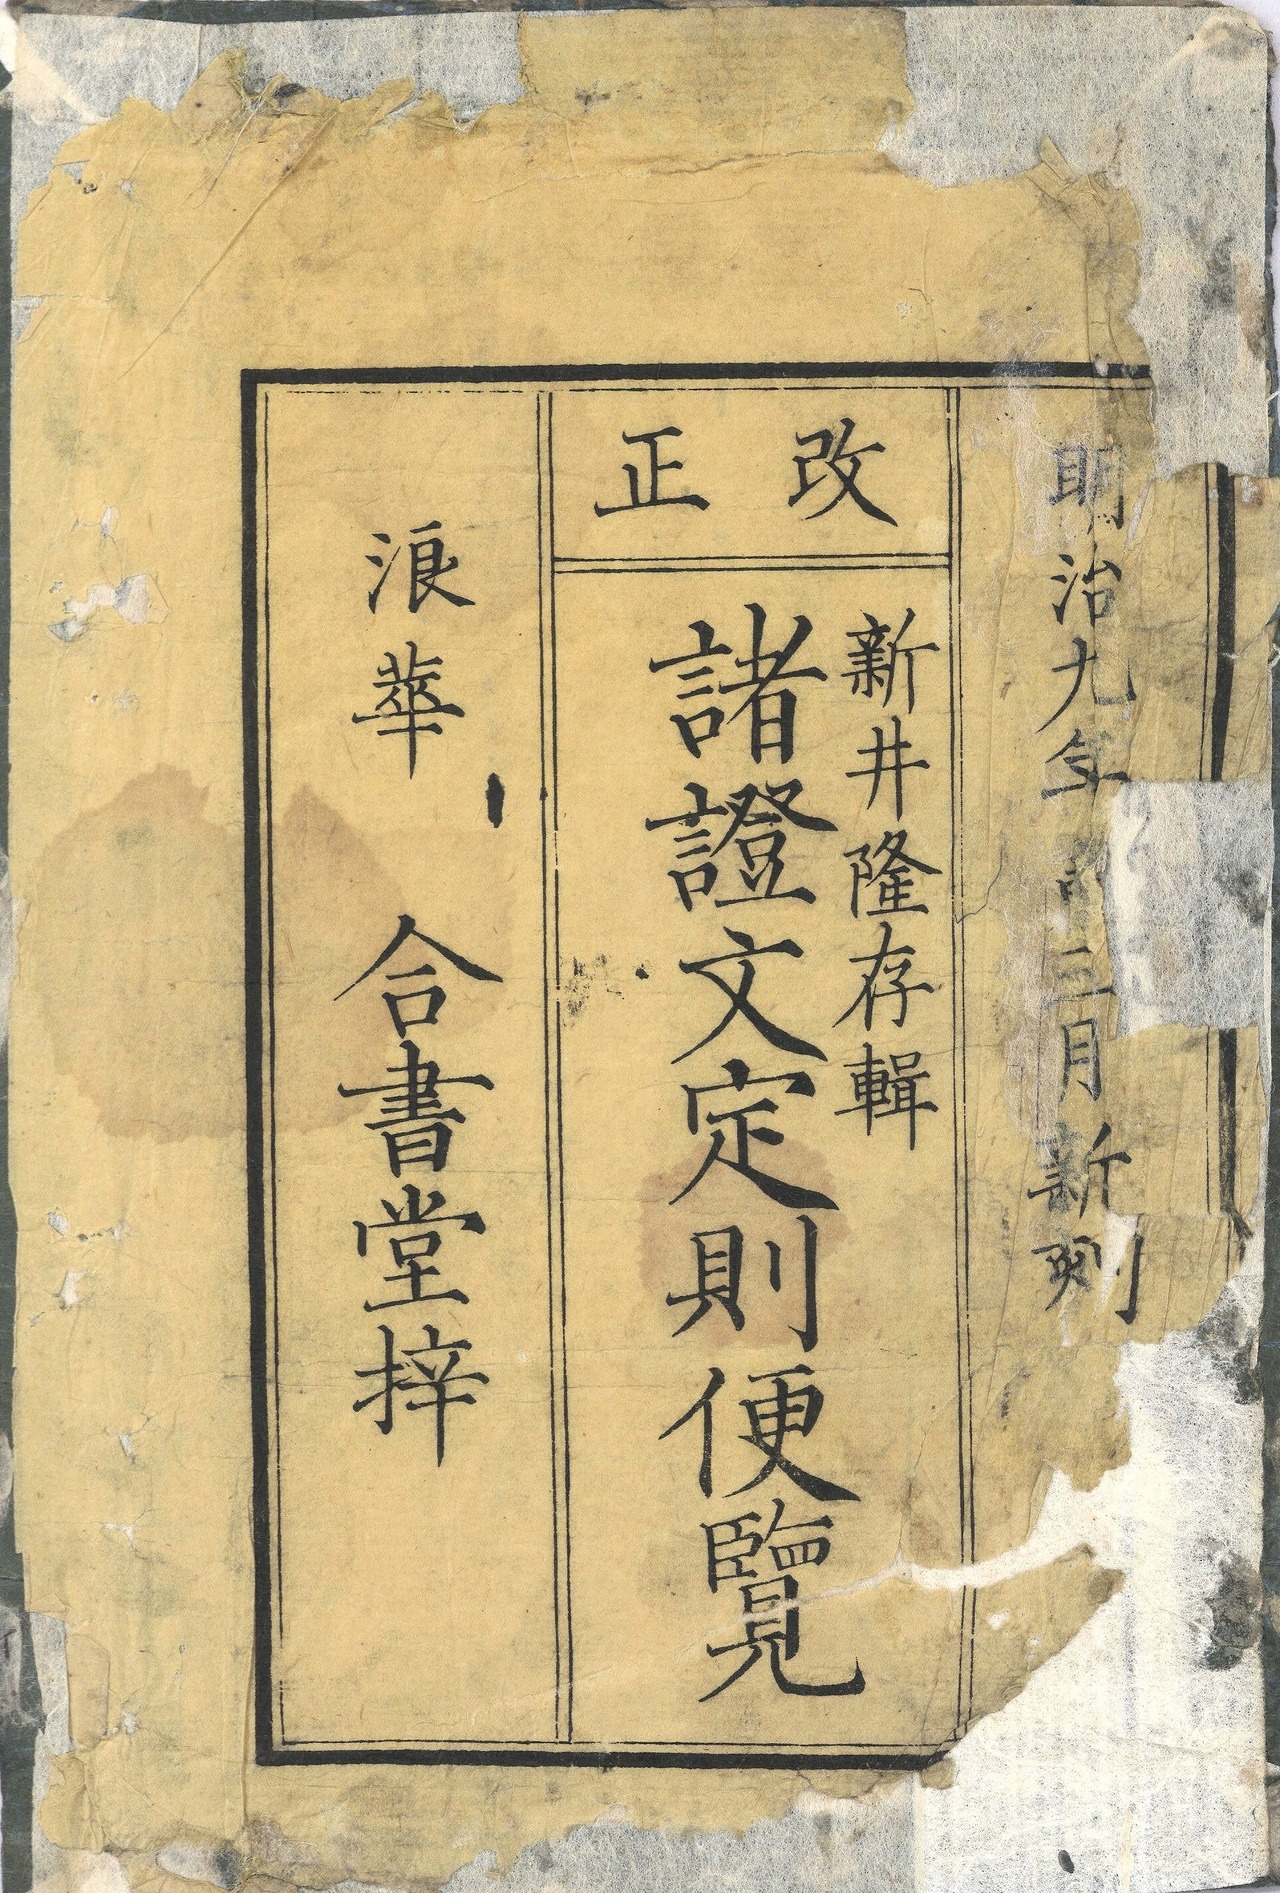 明治九年 三月新刻
改正
新井隆存輯
諸證文定則便覧
浪華 合書堂梓